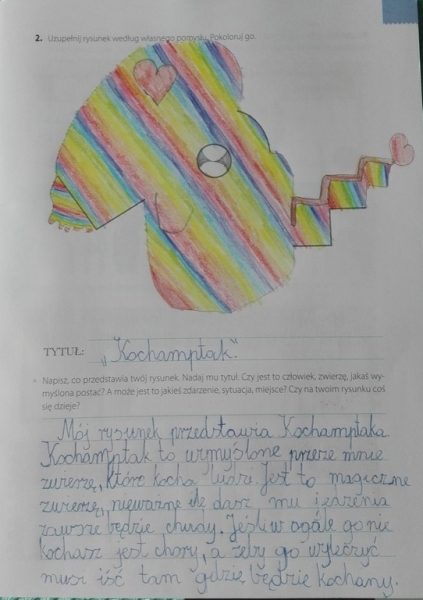 2. Uzupełnij rysunek według własnego pomysłu. Pokoloruj go.
TYTUŁ: „Kochampłak".
Napisz, co przedstawia twój rysunek. Nadaj mu tytuł. Czy jest to człowiek, zwierzę, jakaś wy-
myślona postać? A może jest to jakieś zdarzenie, sytuacja, miejsce? Czy na twoim rysunku coś
się dzieje?
Mój rysunek przedstawia Kochampłaka.
Kochampłak to wymyślone przeze mnie
zwierzę, które kocha ludzi. Jest to magiczne
zwierzę, nieważne ile dasz mu jedzenia
zawsze będzie chudy. Jeśli w ogóle go nie
kochasz jest chory, a żeby go wyleczyć
musi iść tam gdzie będzie kochany.